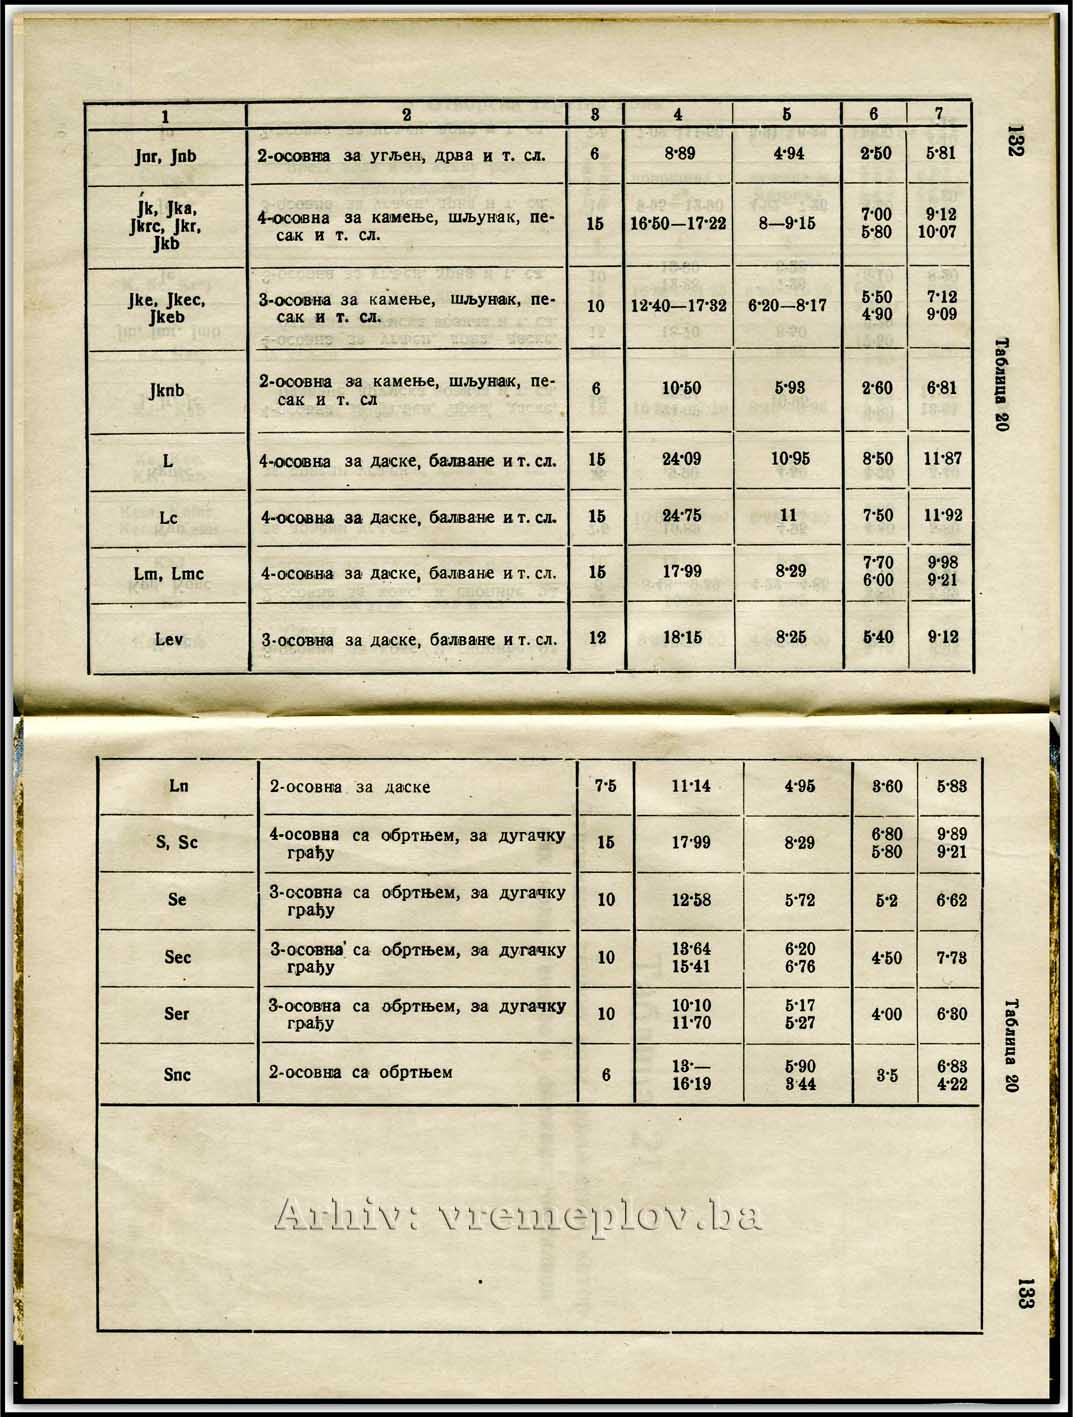 132
Таблица 20
1 2 3 4 5 6 7
Jnr, Jnb 2-осовна за угљен, дрва и т. сл. 6 8·89 4·94 2·50 5·81
Jk, Jka,
Jkrc, Jkr,
Jkb
4-осовна за камење, шљунак, пе-
сак и т. сл.
15 16·50—17·22 8—9·15
7·00 9·12
5·80 10·07
Jke, Jkec,
Jkeb
3-осовна за камење, шљунак, пе-
сак и т. сл.
10 12·40—17·32 6·20—8·17
5·50 7·12
4·90 9·09
Jknb
2-осовна за камење, шљунак, пе-
сак и т. сл
6 10·50 5·93 2·60 6·81
L 4-осовна за даске, балване и т. сл. 15 24·09 10·95 8·50 11·87
Lc 4-осовна за даске, балване и т. сл. 15 24·75 11 7·50 11·92
Lm, Lmc 4-осовна за даске, балване и т. сл. 15 17·99 8·29
7·70 9·98
6·00 9·21
Lev 3-осовна за даске, балване и т. сл. 12 18·15 8·25 5·40 9·12
Ln 2-осовна за даске 7·5 11·14 4·95 3·60 5·83
S, Sc
4-осовна са обртњем, за дугачку
грађу
15 17·99 8·29
6·80 9·89
5·80 9·21
Se
3-осовна са обртњем, за дугачку
грађу
10 12·58 5·72 5·2 6·62
Sec
3-осовна са обртњем, за дугачку
грађу
10
13·64 6·20
15·41 6·76
4·50 7·73
Ser
3-осовна са обртњем, за дугачку
грађу
10
10·10 5·17
11·70 5·27
4·00 6·30
Snc 2-осовна са обртњем 6
13·— 5·90
16·19 3 44
3·5
6·83
4·22
Таблица 20
133
Arhiv: vremeplov.ba